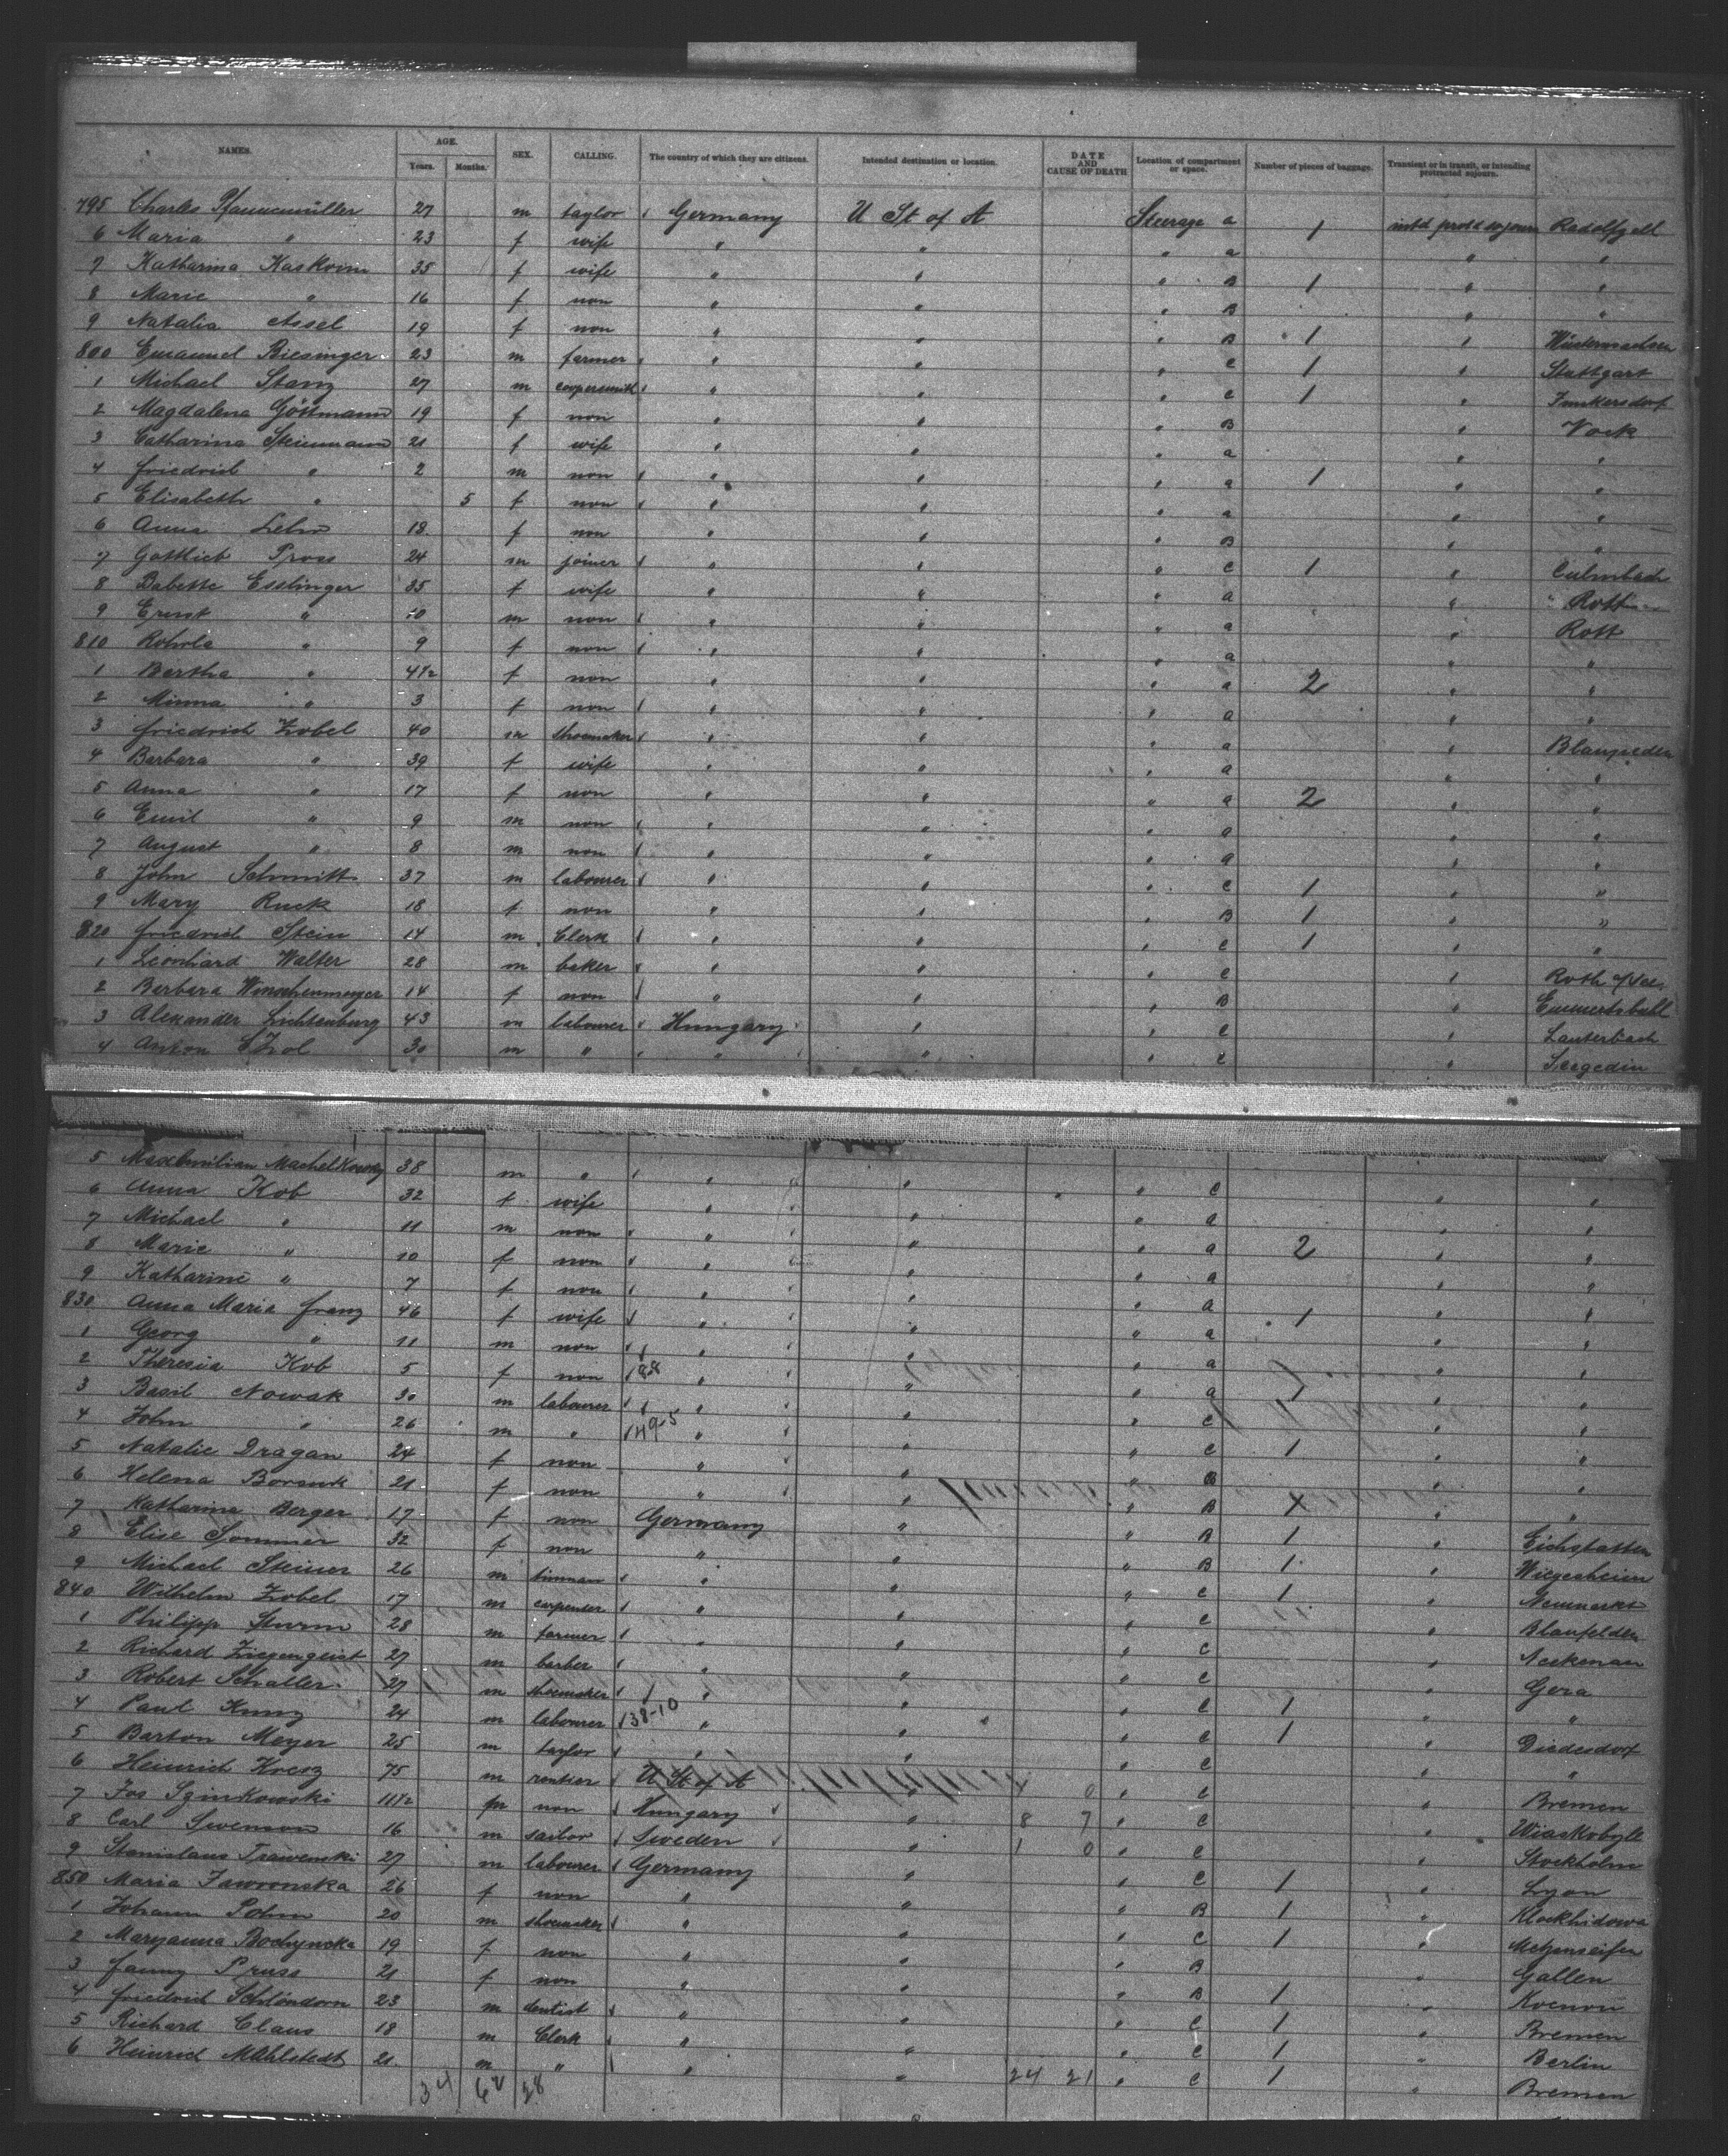 NAMES. AGE. SEX. CALLING. The country of which they are citizens. Intended destination or location. DATE AND CAUSE OF DEATH Location of compartment or space. Number of pieces of baggage. Transient or in transit, or intending protracted sojourn.
Years. Months.
795 Charles Pfannemüller 27 m taylor Germany U St of A Steerage a 1 intd protd sojourn Radolfzell
6 Maria " 23 f wife " " " a " "
7 Katharina 35 f wife " " " B 1 " "
8 Marie " 16 f non " " " B " "
9 Natalia Assel 19 f non " " " B 1 "
800 Emanuel Biesinger 23 m farmer " " " C 1 " Stuttgart
1 Michael Stanz 27 m coopersmith " " " C 1 " Junkersdorf
2 Magdalena Göttmann 19 f non " " " B " Vock
3 Catharina Steinmann 21 f wife " " " a " "
4 Friedrich " 2 m non " " " a 1 " "
5 Elisabeth " 5 f non " " " a " "
6 Anna Lehr 18 f non " " " B " "
7 Gottlieb Pross 24 m joiner " " " C 1 " Culmbach
8 Babette Esslinger 35 f wife " " " a " Rott
9 Ernst " 10 m non " " " a " Rott
810 " 9 f non " " " a " "
1 Bertha " 4 1/2 f non " " " a 2 " "
2 Minna " 3 f non " " " a " "
3 Friedrich Zobel 40 m shoemaker " " " a "
4 Barbara " 39 f wife " " " a " "
5 Anna " 17 f non " " " a 2 " "
6 Emil " 9 m non " " " a " "
7 August " 8 m non " " " a " "
8 John Schmitt 37 m labourer " " " C 1 " "
9 Mary Ruck 18 f non " " " B 1 " "
820 Friedrich Stein 14 m Clerk " " " C 1 " "
1 Leonhard Walter 28 m baker " " " C " Roth
2 Barbara 14 f non " " " B "
3 Alexander Lichtenburg 43 m labourer Hungary " " C " Lauterbach
4 Anton 30 m " " " " C " Szegedin
5 Maximilian 38 m " " " " C " "
6 Anna Kob 32 f wife " " " a " "
7 Michael " 11 m non " " " a 2 " "
8 Marie " 10 f non " " " a " "
9 Katharine " 7 f non " " " a " "
830 Anna Maria Franz 46 f wife " " " a 1 " "
1 Georg " 11 m non " " " a " "
2 Theresia Kob 5 f non " " " a " "
3 Basil Nowak 30 m labourer " " " C " "
4 John " 26 m " 149-5 " " " C 1 " "
5 Natalie Dragan 24 f non " " " B " "
6 Helena 21 f non " " " B " "
7 Katharina Berger 17 f non Germany " " B 1 " Eichstatten
8 Elise Sommer 32 f non " " " B 1 "
9 Michael Steiner 26 m tinman " " " C 1 " Neumarkt
840 Wilhelm Zobel 17 m carpenter " " " C " Blaufelden
1 Philipp Sturm 28 m farmer " " " C " Neckenau
2 Richard Ziegengeist 27 m barber " " " C " Gera
3 Robert Schaller 27 m shoemaker " " " C 1 " "
4 Paul Kunz 24 m labourer 138-10 " " " C 1 " Diedesdorf
5 Barton Meyer 25 m taylor " " " C " "
6 Heinrich Kresz 75 m rentier U St of A " 0 " C " Bremen
7 Jos Szinkowski 11 1/2 m non Hungary " 8 7 " C "
8 Carl Swenson 16 m sailor Sweden " 1 0 " C " Stockholm
9 Stanislaus 27 m labourer Germany " " C 1 " Lyon
850 Maria Jaworonska 26 f non " " " B 1 "
1 Johann Pohm 20 m shoemaker " " " C 1 " Metzenseifen
2 Maryanna Bochynska 19 f non " " " B " Gallen
3 Fanny Pruss 21 f non " " " B 1 " Kownon
4 Friedrich Schlöndorn 23 m dentist " " " C 1 " Bremen
5 Richard Claus 18 m Clerk " " " C 1 " Berlin
6 Heinrich Mahlstedt 21 m " " " 24 21 " C 1 " Bremen
34 62 28